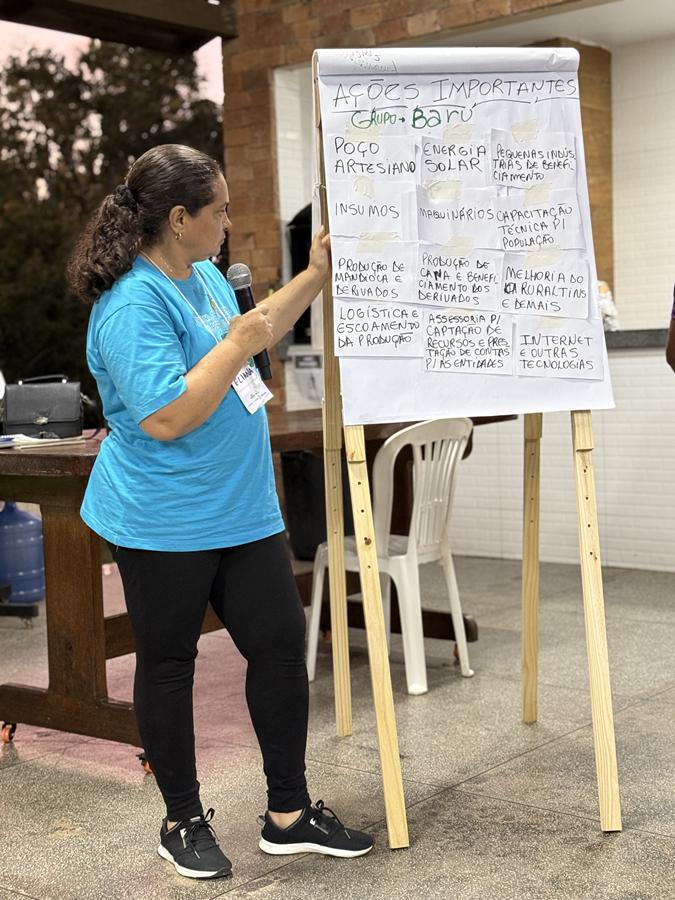 AÇÕES IMPORTANTES
GRUPO → BARU
POÇO
ARTESIANO
ENERGIA
SOLAR
PEQUENAS INDÚS
TRIAS DE BENEFI
CIAMENTO
INSUMOS
MAQUINÁRIOS
CAPACITAÇÃO
TÉCNICA P/
POPULAÇÃO
PRODUÇÃO DE
MANDIOCA E
DERIVADOS
PRODUÇÃO DE
CANA E BENEFI
CIAMENTO DOS
DERIVADOS
MELHORIA DO
RURALTINS
E DEMAIS
LOGÍSTICA E
ESCOAMENTO
DA PRODUÇÃO
ASSESSORIA P/
CAPTAÇÃO DE
RECURSOS E PRES
TAÇÃO DE CONTAS
P/ AS ENTIDADES
INTERNET
E OUTRAS
TECNOLOGIAS